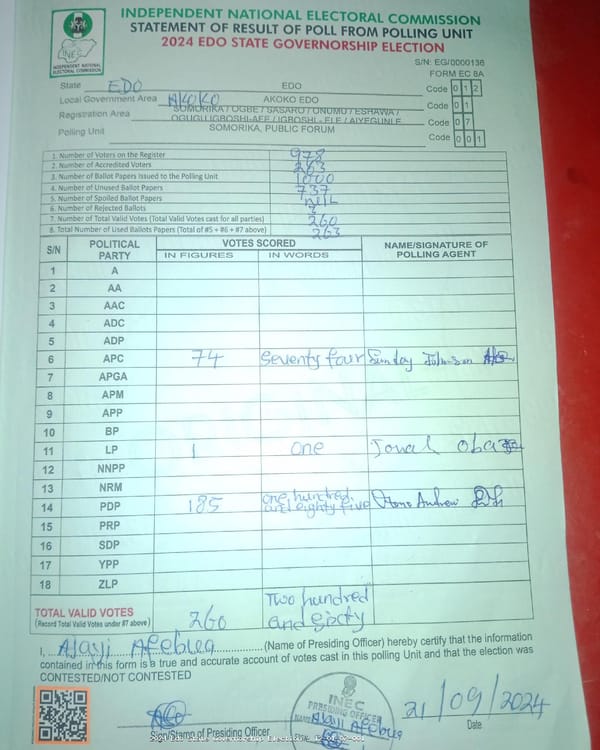 INDEPENDENT NATIONAL ELECTORAL COMMISSION
STATEMENT OF RESULT OF POLL FROM POLLING UNIT
2024 EDO STATE GOVERNORSHIP ELECTION
INEC
INDEPENDENT NATIONAL
ELECTORAL COMMISSION
S/N: EG/0000136
FORM EC 8A
State EDO EDO Code 0 1 2
Local Government Area AKOKO AKOKO EDO Code 0 1
Registration Area SOMORIKA / OGBE / SASARO / ONUMU / ESHAWA / OGUGU IGBOSHI-AFE / IGBOSHI - ELE / AIYEGUNLE Code 0 7
Polling Unit SOMORIKA, PUBLIC FORUM Code 0 0 1
1. Number of Voters on the Register 978
2. Number of Accredited Voters 263
3. Number of Ballot Papers Issued to the Polling Unit 1000
4. Number of Unused Ballot Papers 737
5. Number of Spoiled Ballot Papers NIL
6. Number of Rejected Ballots 3
7. Number of Total Valid Votes (Total Valid Votes cast for all parties) 260
8. Total Number of Used Ballots Papers (Total of #5 + #6 + #7 above) 263
S/N POLITICAL PARTY VOTES SCORED NAME/SIGNATURE OF POLLING AGENT
IN FIGURES IN WORDS
1 A
2 AA
3 AAC
4 ADC
5 ADP
6 APC 74 Seventy four Sunday Johnson
7 APGA
8 APM
9 APP
10 BP
11 LP 1 one Jonah Oba
12 NNPP
13 NRM
14 PDP 185 one hundred and eighty five Andrew
15 PRP
16 SDP
17 YPP
18 ZLP
TOTAL VALID VOTES 260 Two hundred and sixty
(Record Total Valid Votes under #7 above)
I, Ajayi Afebua (Name of Presiding Officer) hereby certify that the information
contained in this form is a true and accurate account of votes cast in this polling Unit and that the election was
CONTESTED/NOT CONTESTED
INEC
PRESIDING OFFICER
NAME Ajayi Afebua
21/09/2024
Sign/Stamp of Presiding Officer
Date